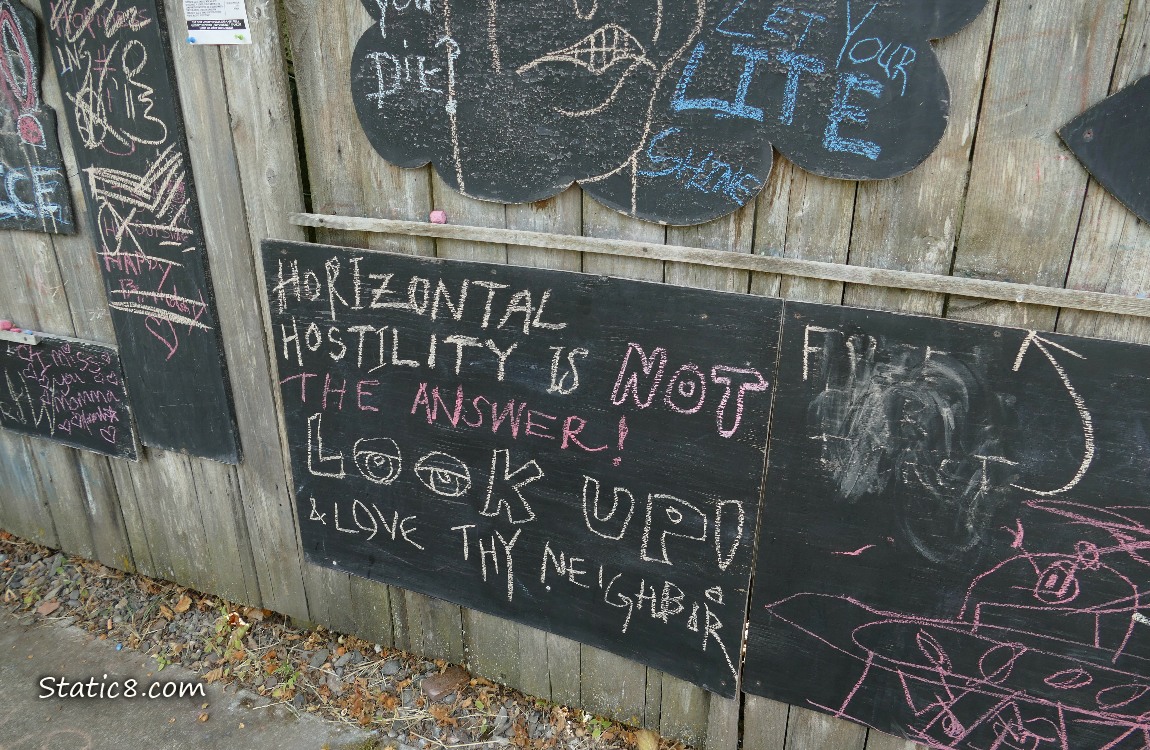 you
DIE
LET YOUR
LITE
SHINE
HAPPY
HORIZONTAL
HOSTILITY IS NOT
THE ANSWER!
LOOK UP!
& LOVE THY NEIGHBOR
miss
you
Momma
Static8.com